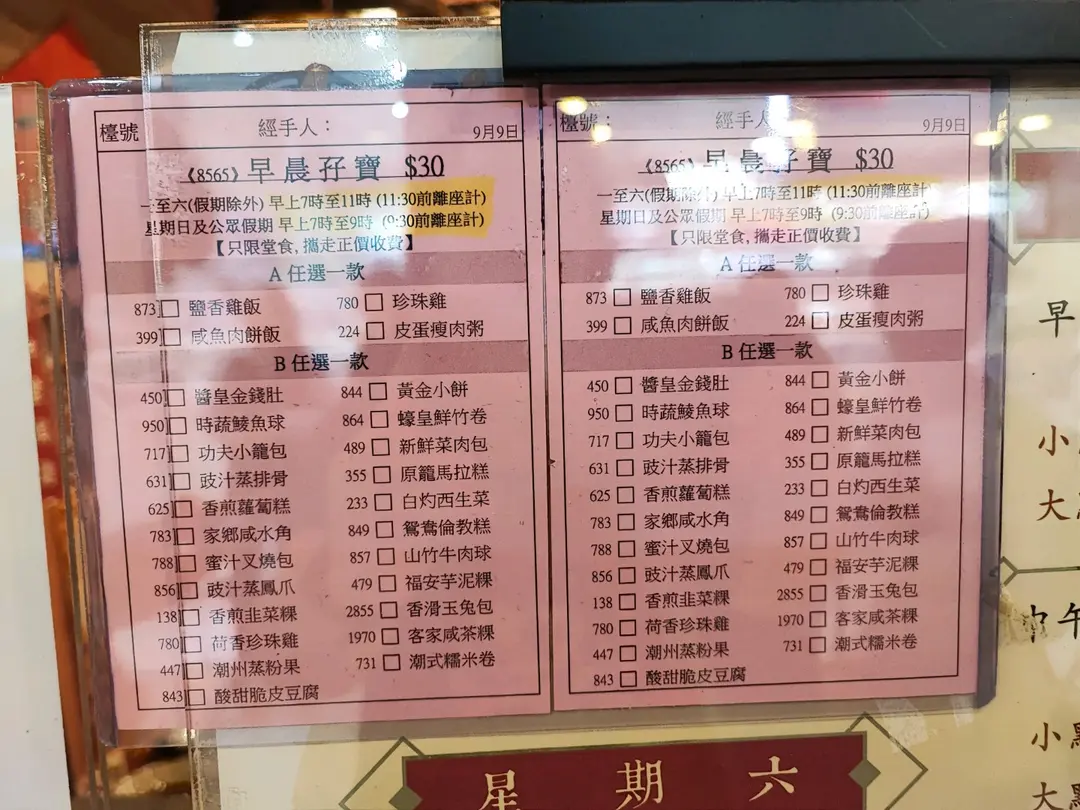 檯號 經手人： 9月9日
《8565》早晨孖寶 $30
一至六(假期除外) 早上7時至11時 (11:30前離座計)
星期日及公眾假期 早上7時至9時 (9:30前離座計)
【只限堂食，攜走正價收費】
A 任選一款
873 □ 鹽香雞飯 780 □ 珍珠雞
399 □ 咸魚肉餅飯 224 □ 皮蛋瘦肉粥
B 任選一款
450 □ 醬皇金錢肚 844 □ 黃金小餅
950 □ 時蔬鯪魚球 864 □ 蠔皇鮮竹卷
717 □ 功夫小籠包 489 □ 新鮮菜肉包
631 □ 豉汁蒸排骨 355 □ 原籠馬拉糕
625 □ 香煎蘿蔔糕 233 □ 白灼西生菜
783 □ 家鄉咸水角 849 □ 鴛鴦倫教糕
788 □ 蜜汁叉燒包 857 □ 山竹牛肉球
856 □ 豉汁蒸鳳爪 479 □ 福安芋泥粿
138 □ 香煎韭菜粿 2855 □ 香滑玉兔包
780 □ 荷香珍珠雞 1970 □ 客家咸茶粿
447 □ 潮州蒸粉果 731 □ 潮式糯米卷
843 □ 酸甜脆皮豆腐
檯號 經手人 9月9日
《8565》早晨孖寶 $30
一至六(假期除外) 早上7時至11時 (11:30前離座計)
星期日及公眾假期 早上7時至9時 (9:30前離座計)
【只限堂食，攜走正價收費】
A 任選一款
873 □ 鹽香雞飯 780 □ 珍珠雞
399 □ 咸魚肉餅飯 224 □ 皮蛋瘦肉粥
B 任選一款
450 □ 醬皇金錢肚 844 □ 黃金小餅
950 □ 時蔬鯪魚球 864 □ 蠔皇鮮竹卷
717 □ 功夫小籠包 489 □ 新鮮菜肉包
631 □ 豉汁蒸排骨 355 □ 原籠馬拉糕
625 □ 香煎蘿蔔糕 233 □ 白灼西生菜
783 □ 家鄉咸水角 849 □ 鴛鴦倫教糕
788 □ 蜜汁叉燒包 857 □ 山竹牛肉球
856 □ 豉汁蒸鳳爪 479 □ 福安芋泥粿
138 □ 香煎韭菜粿 2855 □ 香滑玉兔包
780 □ 荷香珍珠雞 1970 □ 客家咸茶粿
447 □ 潮州蒸粉果 731 □ 潮式糯米卷
843 □ 酸甜脆皮豆腐
早
小
大
中午
小點
大點
星期六